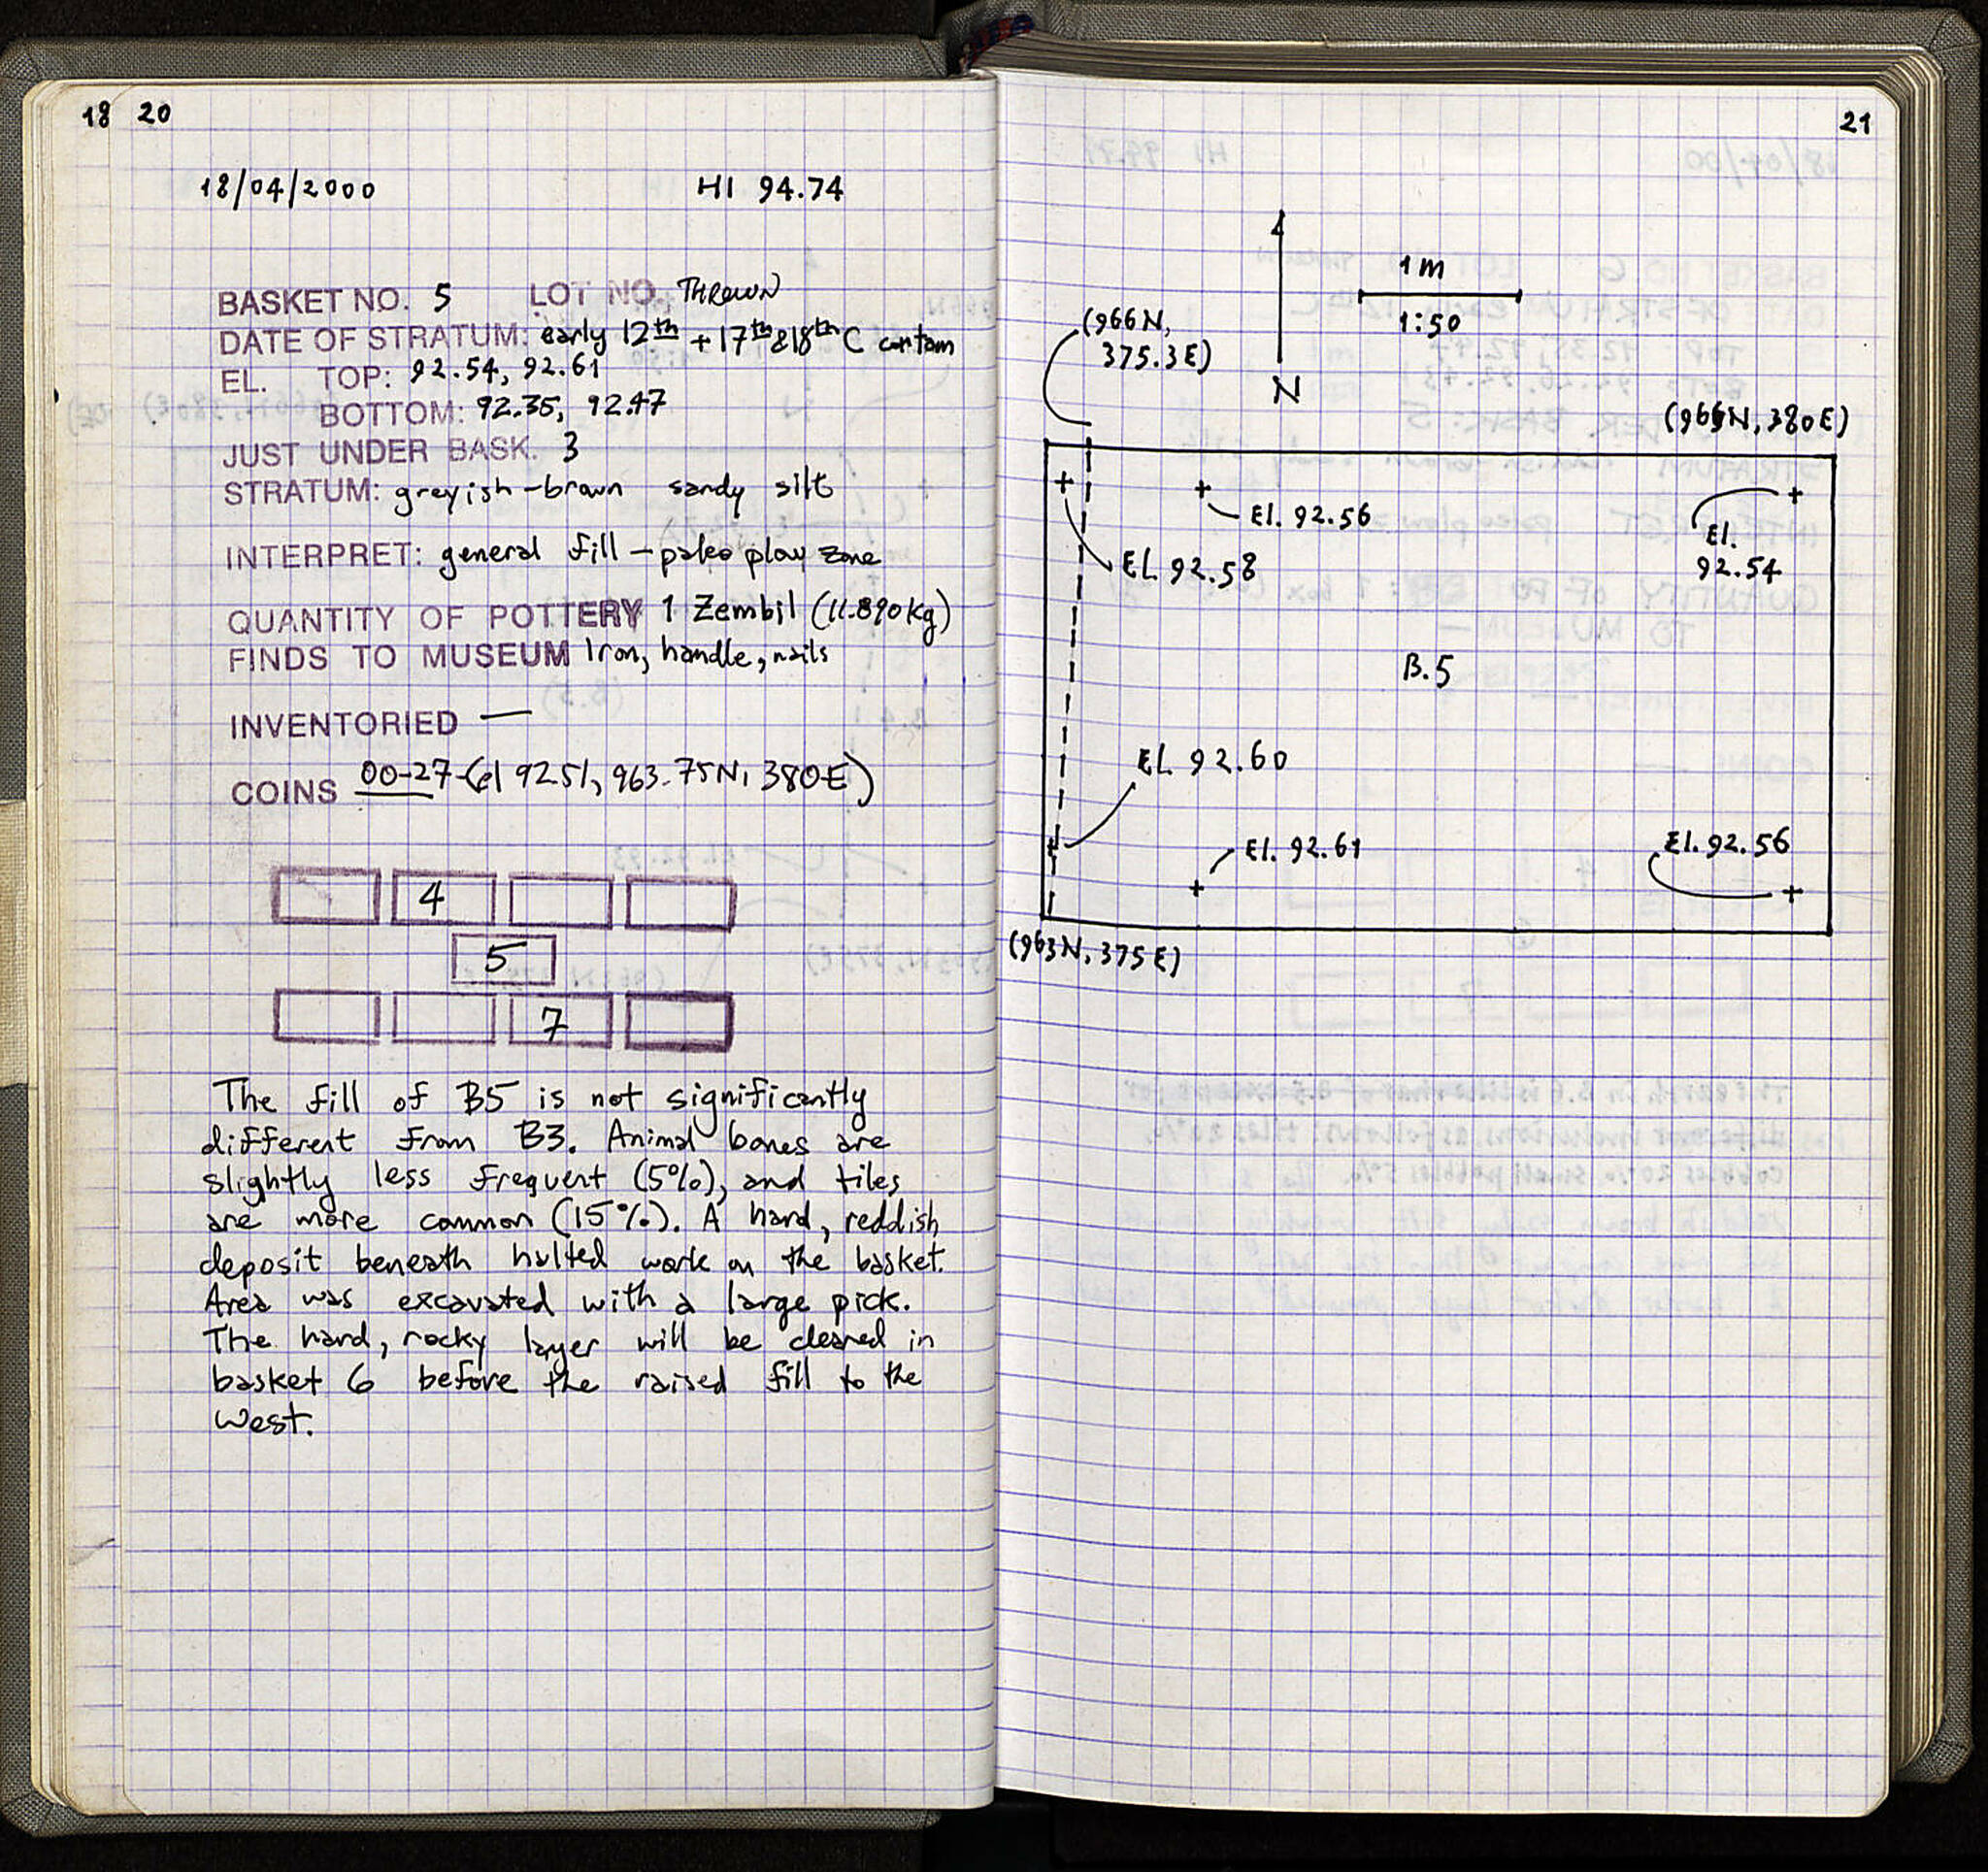 18 20
18/04/2000 HI 94.74
BASKET NO. 5 LOT NO. THROWN
DATE OF STRATUM: early 12th + 17th &18th C contam
EL. TOP: 92.54, 92.61
BOTTOM: 92.35, 92.47
JUST UNDER BASK. 3
STRATUM: greyish-brown sandy silt
INTERPRET: general fill - paleo plow zone
QUANTITY OF POTTERY 1 Zembil (11.890kg)
FINDS TO MUSEUM Iron, handle, nails
INVENTORIED —
COINS 00-27-(el 92.51, 963.75N, 380E)
4
5
7
The fill of B5 is not significantly
different from B3. Animal bones are
slightly less frequent (5%), and tiles
are more common (15%). A hard, reddish
deposit beneath hulted work on the basket.
Area was excavated with a large pick.
The hard, rocky layer will be cleared in
basket 6 before the raised fill to the
West.
21
1m
1:50
N
(966N,
375.3E)
(966N, 380E)
El. 92.56
EL 92.58
El.
92.54
B.5
EL 92.60
El. 92.61
El. 92.56
(963N, 375E)